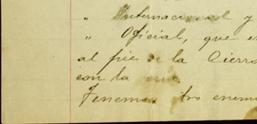 " Internacional y
" Oficial, que e
al pie de la Cierra
con la
Tenemos otro enem